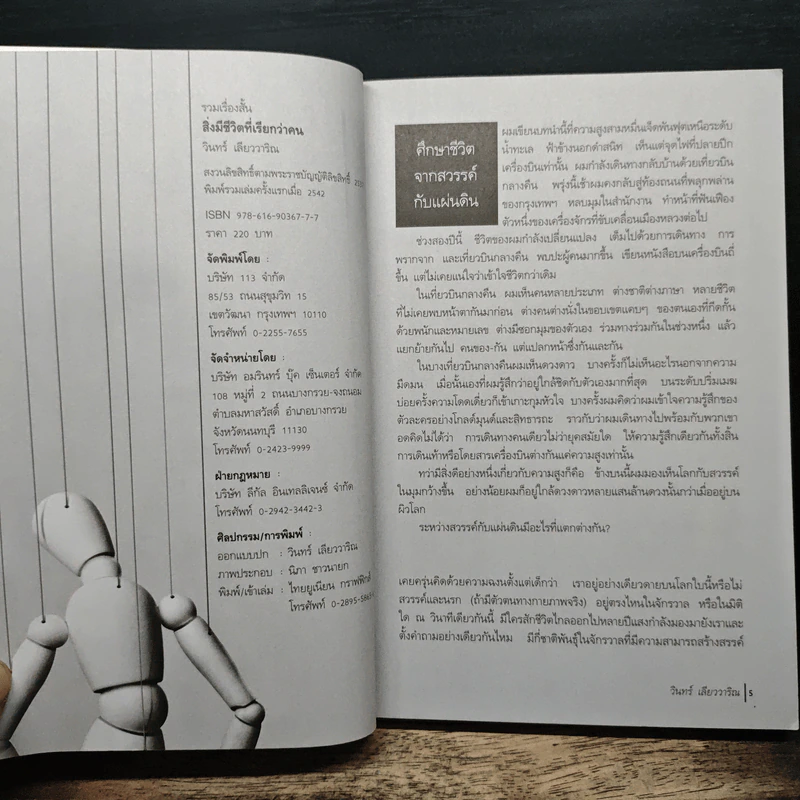 รวมเรื่องสั้น
สิ่งมีชีวิตที่เรียกว่าคน
วินทร์ เลียววาริณ
สงวนลิขสิทธิ์ตามพระราชบัญญัติลิขสิทธิ์
พิมพ์รวมเล่มครั้งแรกเมื่อ 2542
ISBN 978-616-90367-7-7
ราคา 220 บาท
จัดพิมพ์โดย :
บริษัท 113 จำกัด
85/53 ถนนสุขุมวิท 15
เขตวัฒนา กรุงเทพฯ 10110
โทรศัพท์ 0-2255-7655
จัดจำหน่ายโดย :
บริษัท อมรินทร์ บุ๊ค เซ็นเตอร์ จำกัด
108 หมู่ที่ 2 ถนนบางกรวย-จงถนอม
ตำบลมหาสวัสดิ์ อำเภอบางกรวย
จังหวัดนนทบุรี 11130
โทรศัพท์ 0-2423-9999
ฝ่ายกฎหมาย :
บริษัท ลีกัล อินเทลลิเจนซ์ จำกัด
โทรศัพท์ 0-2942-3442-3
ศิลปกรรม/การพิมพ์ :
ออกแบบปก : วินทร์ เลียววาริณ
ภาพประกอบ : นิภา ชาวนายก
พิมพ์/เข้าเล่ม : ไทยยูเนียน กราฟฟิกส์
โทรศัพท์
ศึกษาชีวิต
จากสวรรค์
กับแผ่นดิน
ผมเขียนบทนำนี้ที่ความสูงสามหมื่นเจ็ดพันฟุตเหนือระดับ
น้ำทะเล ฟ้าข้างนอกดำสนิท เห็นแต่จุดไฟที่ปลายปีก
เครื่องบินเท่านั้น ผมกำลังเดินทางกลับบ้านด้วยเที่ยวบิน
กลางคืน พรุ่งนี้เช้าผมคงกลับสู่ท้องถนนที่พลุกพล่าน
ของกรุงเทพฯ หลบมุมในสำนักงาน ทำหน้าที่ฟันเฟือง
ตัวหนึ่งของเครื่องจักรที่ขับเคลื่อนเมืองหลวงต่อไป
ช่วงสองปีนี้ ชีวิตของผมกำลังเปลี่ยนแปลง เต็มไปด้วยการเดินทาง การ
พรากจาก และเที่ยวบินกลางคืน พบปะผู้คนมากขึ้น เขียนหนังสือบนเครื่องบินถี่
ขึ้น แต่ไม่เคยแน่ใจว่าเข้าใจชีวิตกว่าเดิม
ในเที่ยวบินกลางคืน ผมเห็นคนหลายประเภท ต่างชาติต่างภาษา หลายชีวิต
ที่ไม่เคยพบหน้าตากันมาก่อน ต่างคนต่างนั่งในขอบเขตแคบๆ ของตนเองที่กีดกั้น
ด้วยพนักและหมายเลข ต่างมีซอกมุมของตัวเอง ร่วมทางร่วมกันในช่วงหนึ่ง แล้ว
แยกย้ายกันไป คนของ-กัน แต่แปลกหน้าซึ่งกันและกัน
ในบางเที่ยวบินกลางคืนผมเห็นดวงดาว บางครั้งก็ไม่เห็นอะไรนอกจากความ
มืดมน เมื่อนั้นเองที่ผมรู้สึกว่าอยู่ใกล้ชิดกับตัวเองมากที่สุด บนระดับปริ่มเมฆ
บ่อยครั้งความโดดเดี่ยวก็เข้าเกาะกุมหัวใจ บางครั้งผมคิดว่าผมเข้าใจความรู้สึกของ
ตัวละครอย่างโกลด์มุนด์และสิทธารถะ ราวกับว่าผมเดินทางไปพร้อมกับพวกเขา
อดคิดไม่ได้ว่า การเดินทางคนเดียวไม่ว่ายุคสมัยใด ให้ความรู้สึกเดียวกันทั้งสิ้น
การเดินเท้าหรือโดยสารเครื่องบินต่างกันแค่ความสูงเท่านั้น
ทว่ามีสิ่งดีอย่างหนึ่งเกี่ยวกับความสูงก็คือ ข้างบนนี้ผมมองเห็นโลกกับสวรรค์
ในมุมกว้างขึ้น อย่างน้อยผมก็อยู่ใกล้ดวงดาวหลายแสนล้านดวงนั้นกว่าเมื่ออยู่บน
ผิวโลก
ระหว่างสวรรค์กับแผ่นดินมีอะไรที่แตกต่างกัน?
เคยครุ่นคิดด้วยความฉงนตั้งแต่เด็กว่า เราอยู่อย่างเดียวดายบนโลกใบนี้หรือไม่
สวรรค์และนรก (ถ้ามีตัวตนทางกายภาพจริง) อยู่ตรงไหนในจักรวาล หรือในมิติ
ใด ณ วินาทีเดียวกันนี้ มีใครสักชีวิตไกลออกไปหลายปีแสงกำลังมองมายังเราและ
ตั้งคำถามอย่างเดียวกันไหม มีกี่ชาติพันธุ์ในจักรวาลที่มีความสามารถสร้างสรรค์
วินทร์ เลียววาริณ 5